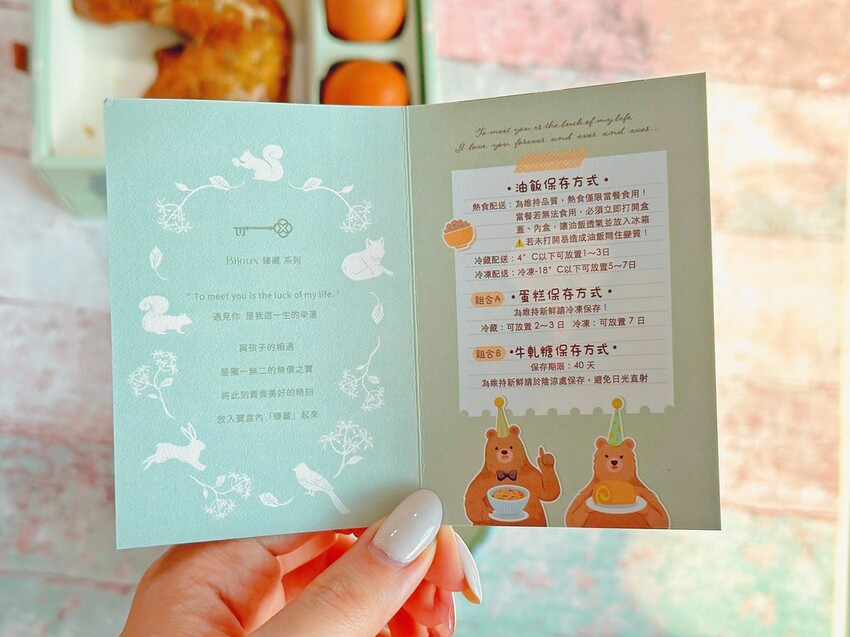 Bijoux 臻藏 系列
" To meet you is the luck of my life. "
遇見你 是我這一生的幸運
與孩子的相遇
是獨一無二的無價之寶
將此刻寶貴美好的時刻
放入寶盒內「臻藏」起來
To meet you is the luck of my life
I love you forever and ever and ever...
• 油飯保存方式 •
熱食配送：為維持品質，熱食僅限當餐食用！
當餐若無法食用，必須立即打開盒
蓋、內盒，讓油飯透氣並放入冰箱
⚠若未打開易造成油飯悶住變質！
冷藏配送：4°C以下可放置1～3日
冷凍配送：冷凍-18°C以下可放置5～7日
組合A •蛋糕保存方式•
為維持新鮮請冷凍保存！
冷藏：可放置 2～3 日 冷凍：可放置 7 日
組合B •牛軋糖保存方式•
保存期限：40 天
為維持新鮮請於陰涼處保存，避免日光直射